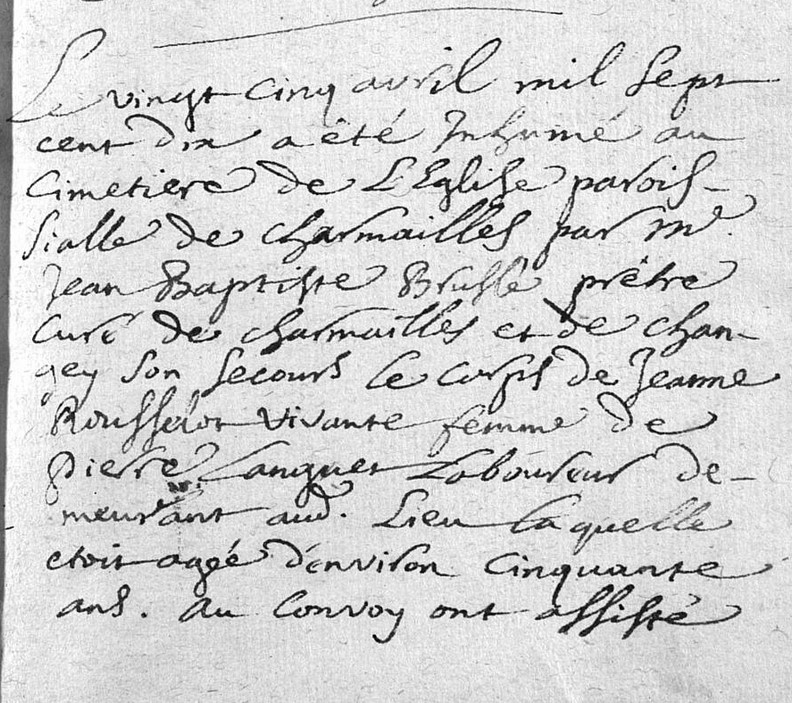 Le vingt cinq avril mil sept
cent dix a êté Inhumé au
Cimetiere de L'Eglise parois-
sialle de charmailles par mre.
Jean Baptiste Bruslé prêtre
Curé de charmailles et de chan-
gey son secours le corps de Jeanne
Rousselot vivante femme de
pierre Languet Laboureur de-
meurant aud. Lieu laquelle
etoit agée d'environ cinquante
ans. au Convoy ont assisté